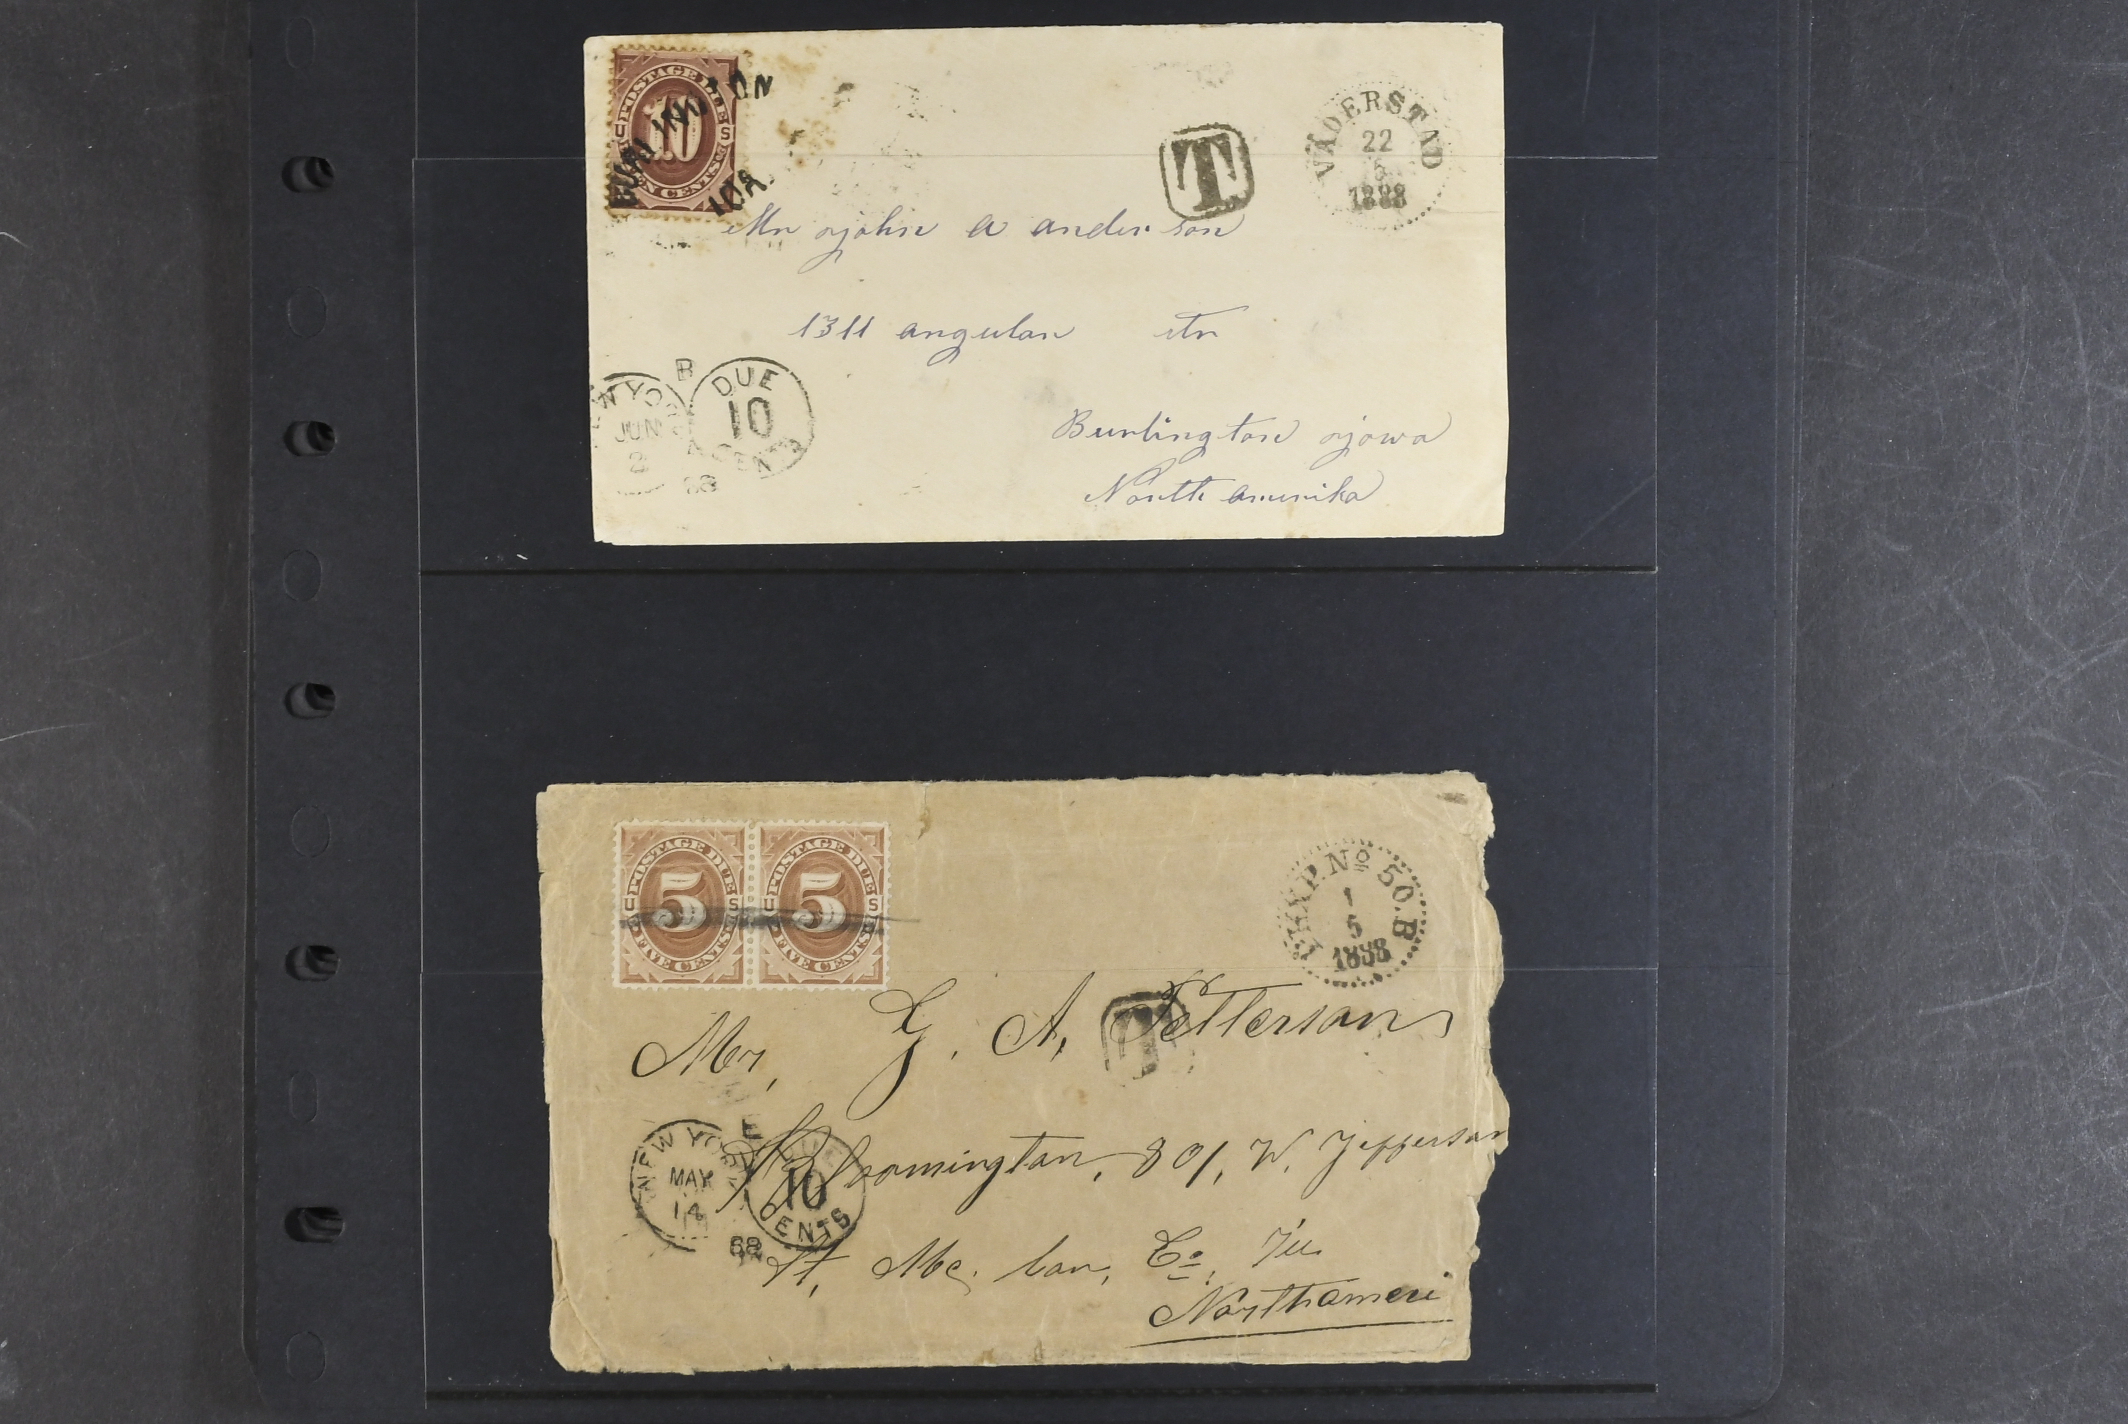 POSTAGE DUE
U 10 S
TEN CENTS
BURLINGTON
IOA.
T
VÄDERSTAD
22
5
1888
Mr ojohn a anderson
1311 angular str
B
NEW YORK
JUN
8
88
DUE
10
CENTS
Burlington ojowa
North amerika
POSTAGE DUE
U 5 S
FIVE CENTS
POSTAGE DUE
U 5 S
FIVE CENTS
PKXP. No 50. B
1
5
1888
Mr, G. A. Petterson
T
E
NEW YORK
MAY
14
88
DUE
10
CENTS
Bloomington, 801, W, Jefferson
St, Mc. lan, Co,
Northameri